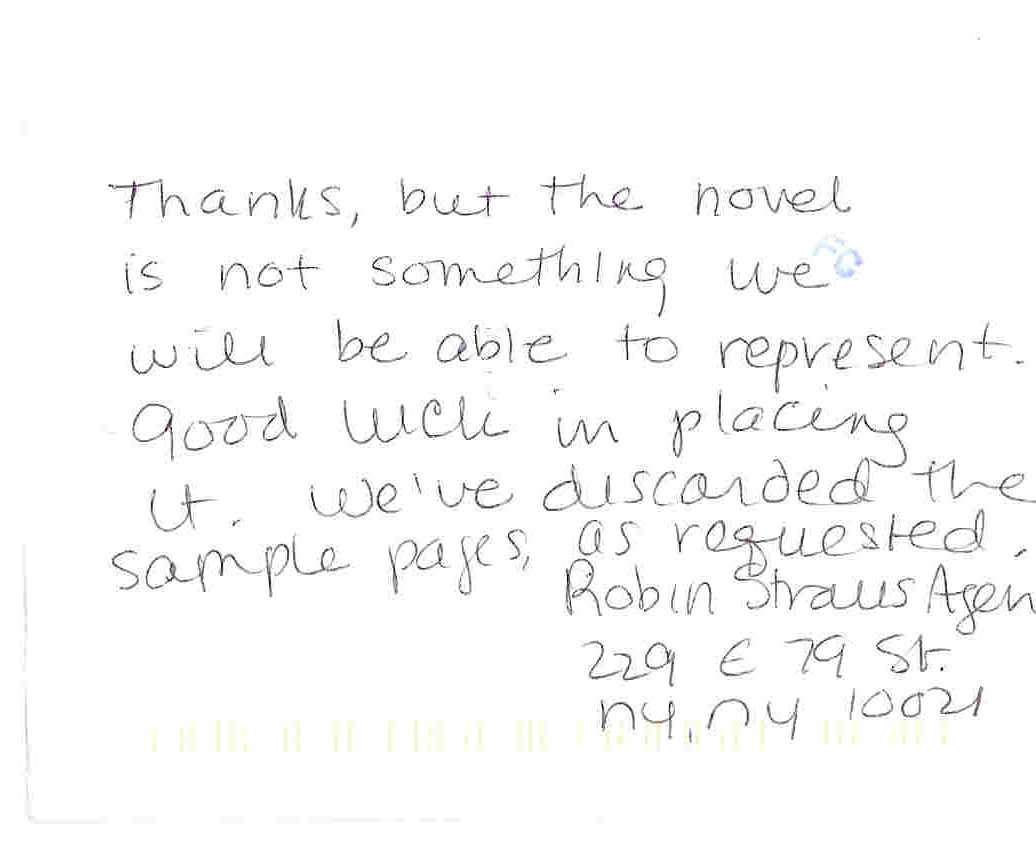 Thanks, but the novel
is not something we
will be able to represent.
Good luck in placing
it. We've discarded the
sample pages, as requested.
Robin Straus Agen
229 E 79 St.
NY, NY 10021